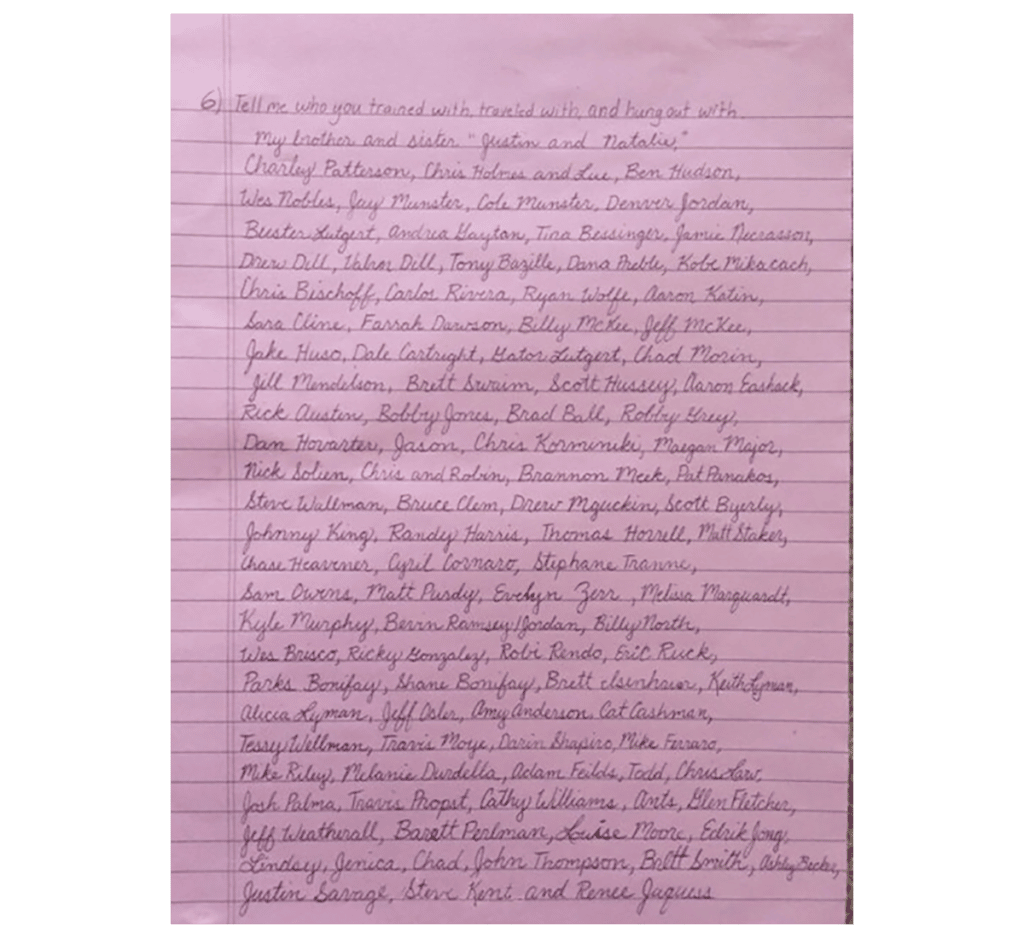 6) Tell me who you trained with, traveled with, and hung out with.
My brother and sister "Justin and Natalie,"
Charley Patterson, Chris Holmes and Lue, Ben Hudson,
Wes Nobles, Jay Munster, Cole Munster, Denver Jordan,
Buster Lutgert, Andrea Gaytan, Tina Bessinger, Jamie Necrasson,
Drew Dill, Dill, Tony Bazille, Dana Preble, Kobe Mikacach,
Chris Bischoff, Carlos Rivera, Ryan Wolfe, Aaron Katin,
Sara Cline, Farrah Dawson, Billy McKee, Jeff McKee,
Jake Huso, Dale Cartright, Gator Lutgert, Chad Morin,
Jill Mendelson, Brett Swaim, Scott Hussey, Aaron Eashack,
Rick Austen, Bobby Jones, Brad Ball, Robby Grey,
Dan Hovarter, Jason, Chris Korminiki, Maegan Major,
Nick Solien, Chris and Robin, Brannon Meek, Pat Panakos,
Steve Wallman, Bruce Clem, Drew Mguckin, Scott Byerly,
Johnny King, Randy Harris, Thomas Horrell, Matt Staker,
Chase Heavener, Cyril Cornaro, Stephane Tranne,
Sam Owens, Matt Purdy, Evelyn Zerr, Melissa Marquardt,
Kyle Murphy, Bevin Ramsey/Jordan, Billy North,
Wes Brisco, Ricky Gonzalez, Robi Rendo, Eric Ruck,
Parks Bonifay, Shane Bonifay, Brett Isenhauer, Keith Lyman,
Alicia Lyman, Jeff Osler, Amy Anderson, Cat Cashman,
Tessy Wellman, Travis Moye, Darin Shapiro, Mike Ferraro,
Mike Riley, Melanie Durdella, Adam Feilds, Todd, Chris Law,
Josh Palma, Travis Propst, Cathy Williams, Ants, Glen Fletcher,
Jeff Weatherall, Barett Perlman, Louise Moore, Edrik Jong,
Lindsay, Jenica, Chad, John Thompson, Brett Smith, Ashley Becker,
Justin Savage, Steve Kent and Renee Jaquess